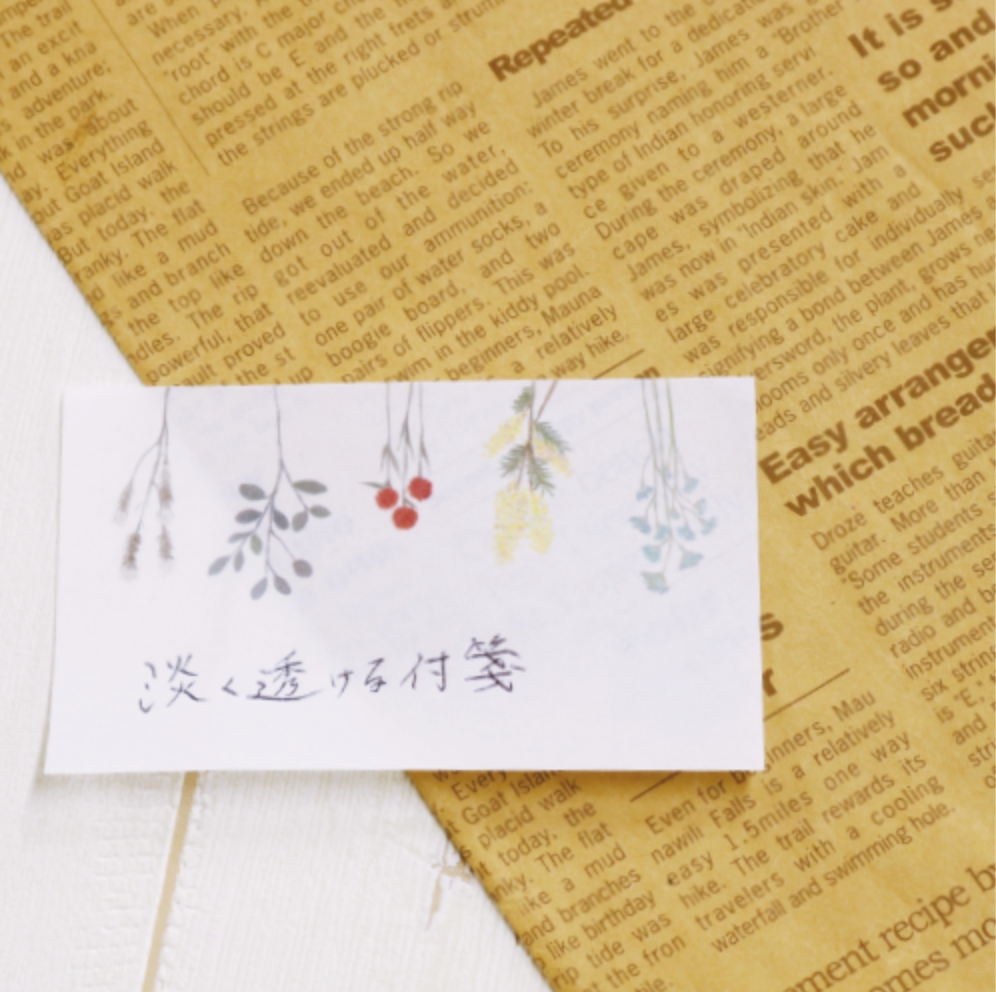 the trail
an excit
and a kna
adventure;
in the park.
was about
Everything
Goat Island
placid walk
But today, the
The flat
like a mud
and branch
the top like
The rip
powerful, that
proved
the st
When
necessary.
"root" with the
chord is C major
should be E and the
pressed at the right frets and
the strings are plucked or strum
Because of the strong rip
tide, we ended up half way
down the beach. So we
got out of the water,
reevaluated and decided
to use our ammunition:
one pair of water socks, a
boogie board, and two
pairs of flippers. This was
in the kiddy pool.
beginners, Mauna
relatively
way hike.
Repeated
James went to the
winter break for a dedicati
To his surprise, James was
ceremony naming him a "Brother
type of Indian honoring servi
ce given to a westerner.
During the ceremony, a large
cape was draped around
James, symbolizing that he
was now in "Indian skin." Jam
es was presented with a
large celebratory cake and
was responsible for individually
signifying a bond between James a
the plant, grows
blooms only once and has
and silvery leaves that
It is s
so and
morni
such
Easy arrange
which bread
Droze teaches guita
guitar. More than
"Some students
the instruments
during the se
radio and b
instrument
six string
is "E,"
and
淡く透ける付箋
Every
Goat Island
placid walk
today, the
The flat
like a mud
and branches
like birthday
tide was
the fron
Mau
Falls is a relatively
easy 1.5miles one way
hike. The trail rewards its
travelers with a cooling
waterfall and swimming hole.
ment recipe b
omes mo